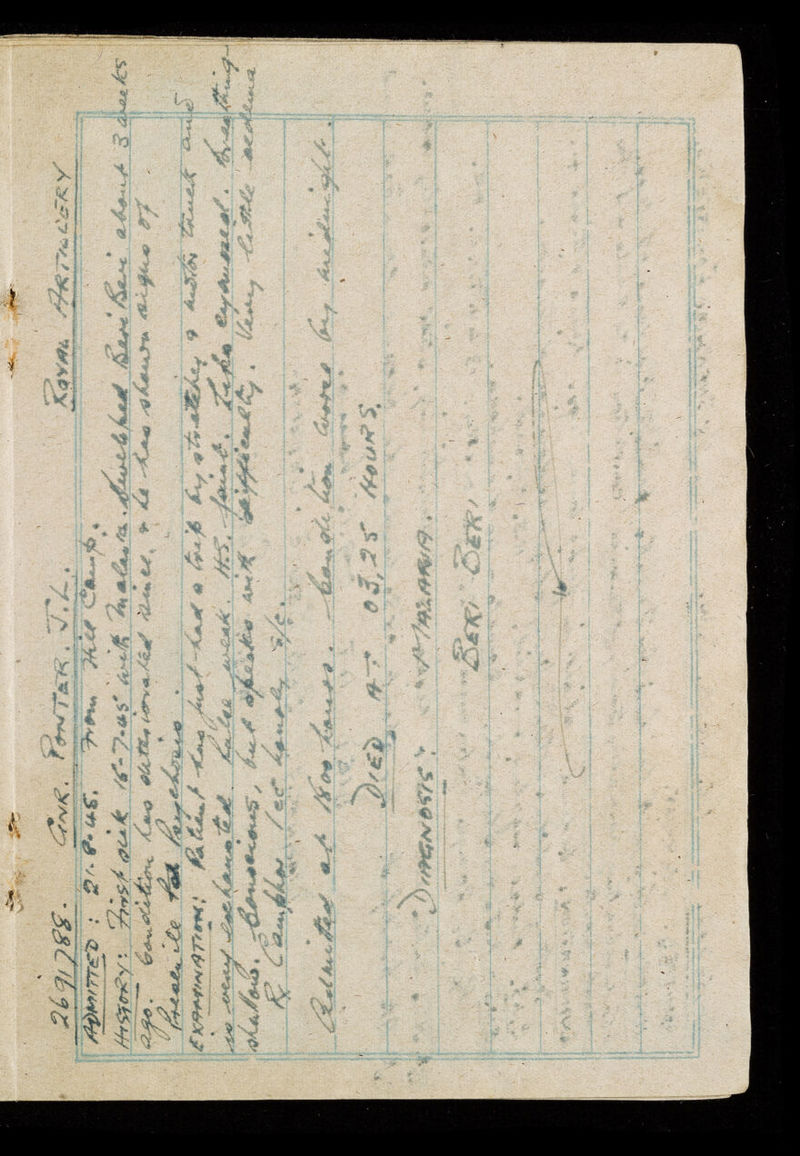 2691788. GNR. PONTER. J.L. ROYAL ARTILLERY
ADMITTED: 21.8.45. From Hill Camp.
HISTORY: First sick 15-7-45 with Malaria. Developed Beri Beri about 3 weeks
ago. Condition has deteriorated since. & he has shown signs of
Presenile Psychosis.
EXAMINATION: Patient has just had a trip by stretcher & motor truck and
is very exhausted. Pulse weak. H.S. faint. Lips cyanosed. Breathing
shallow. Conscious, but speaks with difficulty. Very little oedema
Rx Camphor 1 cc hourly s/c.
Admitted at 1800 hours. Condition worse by midnight.
DIED AT 03,25 HOURS.
DIAGNOSIS: MALARIA.
BERI BERI